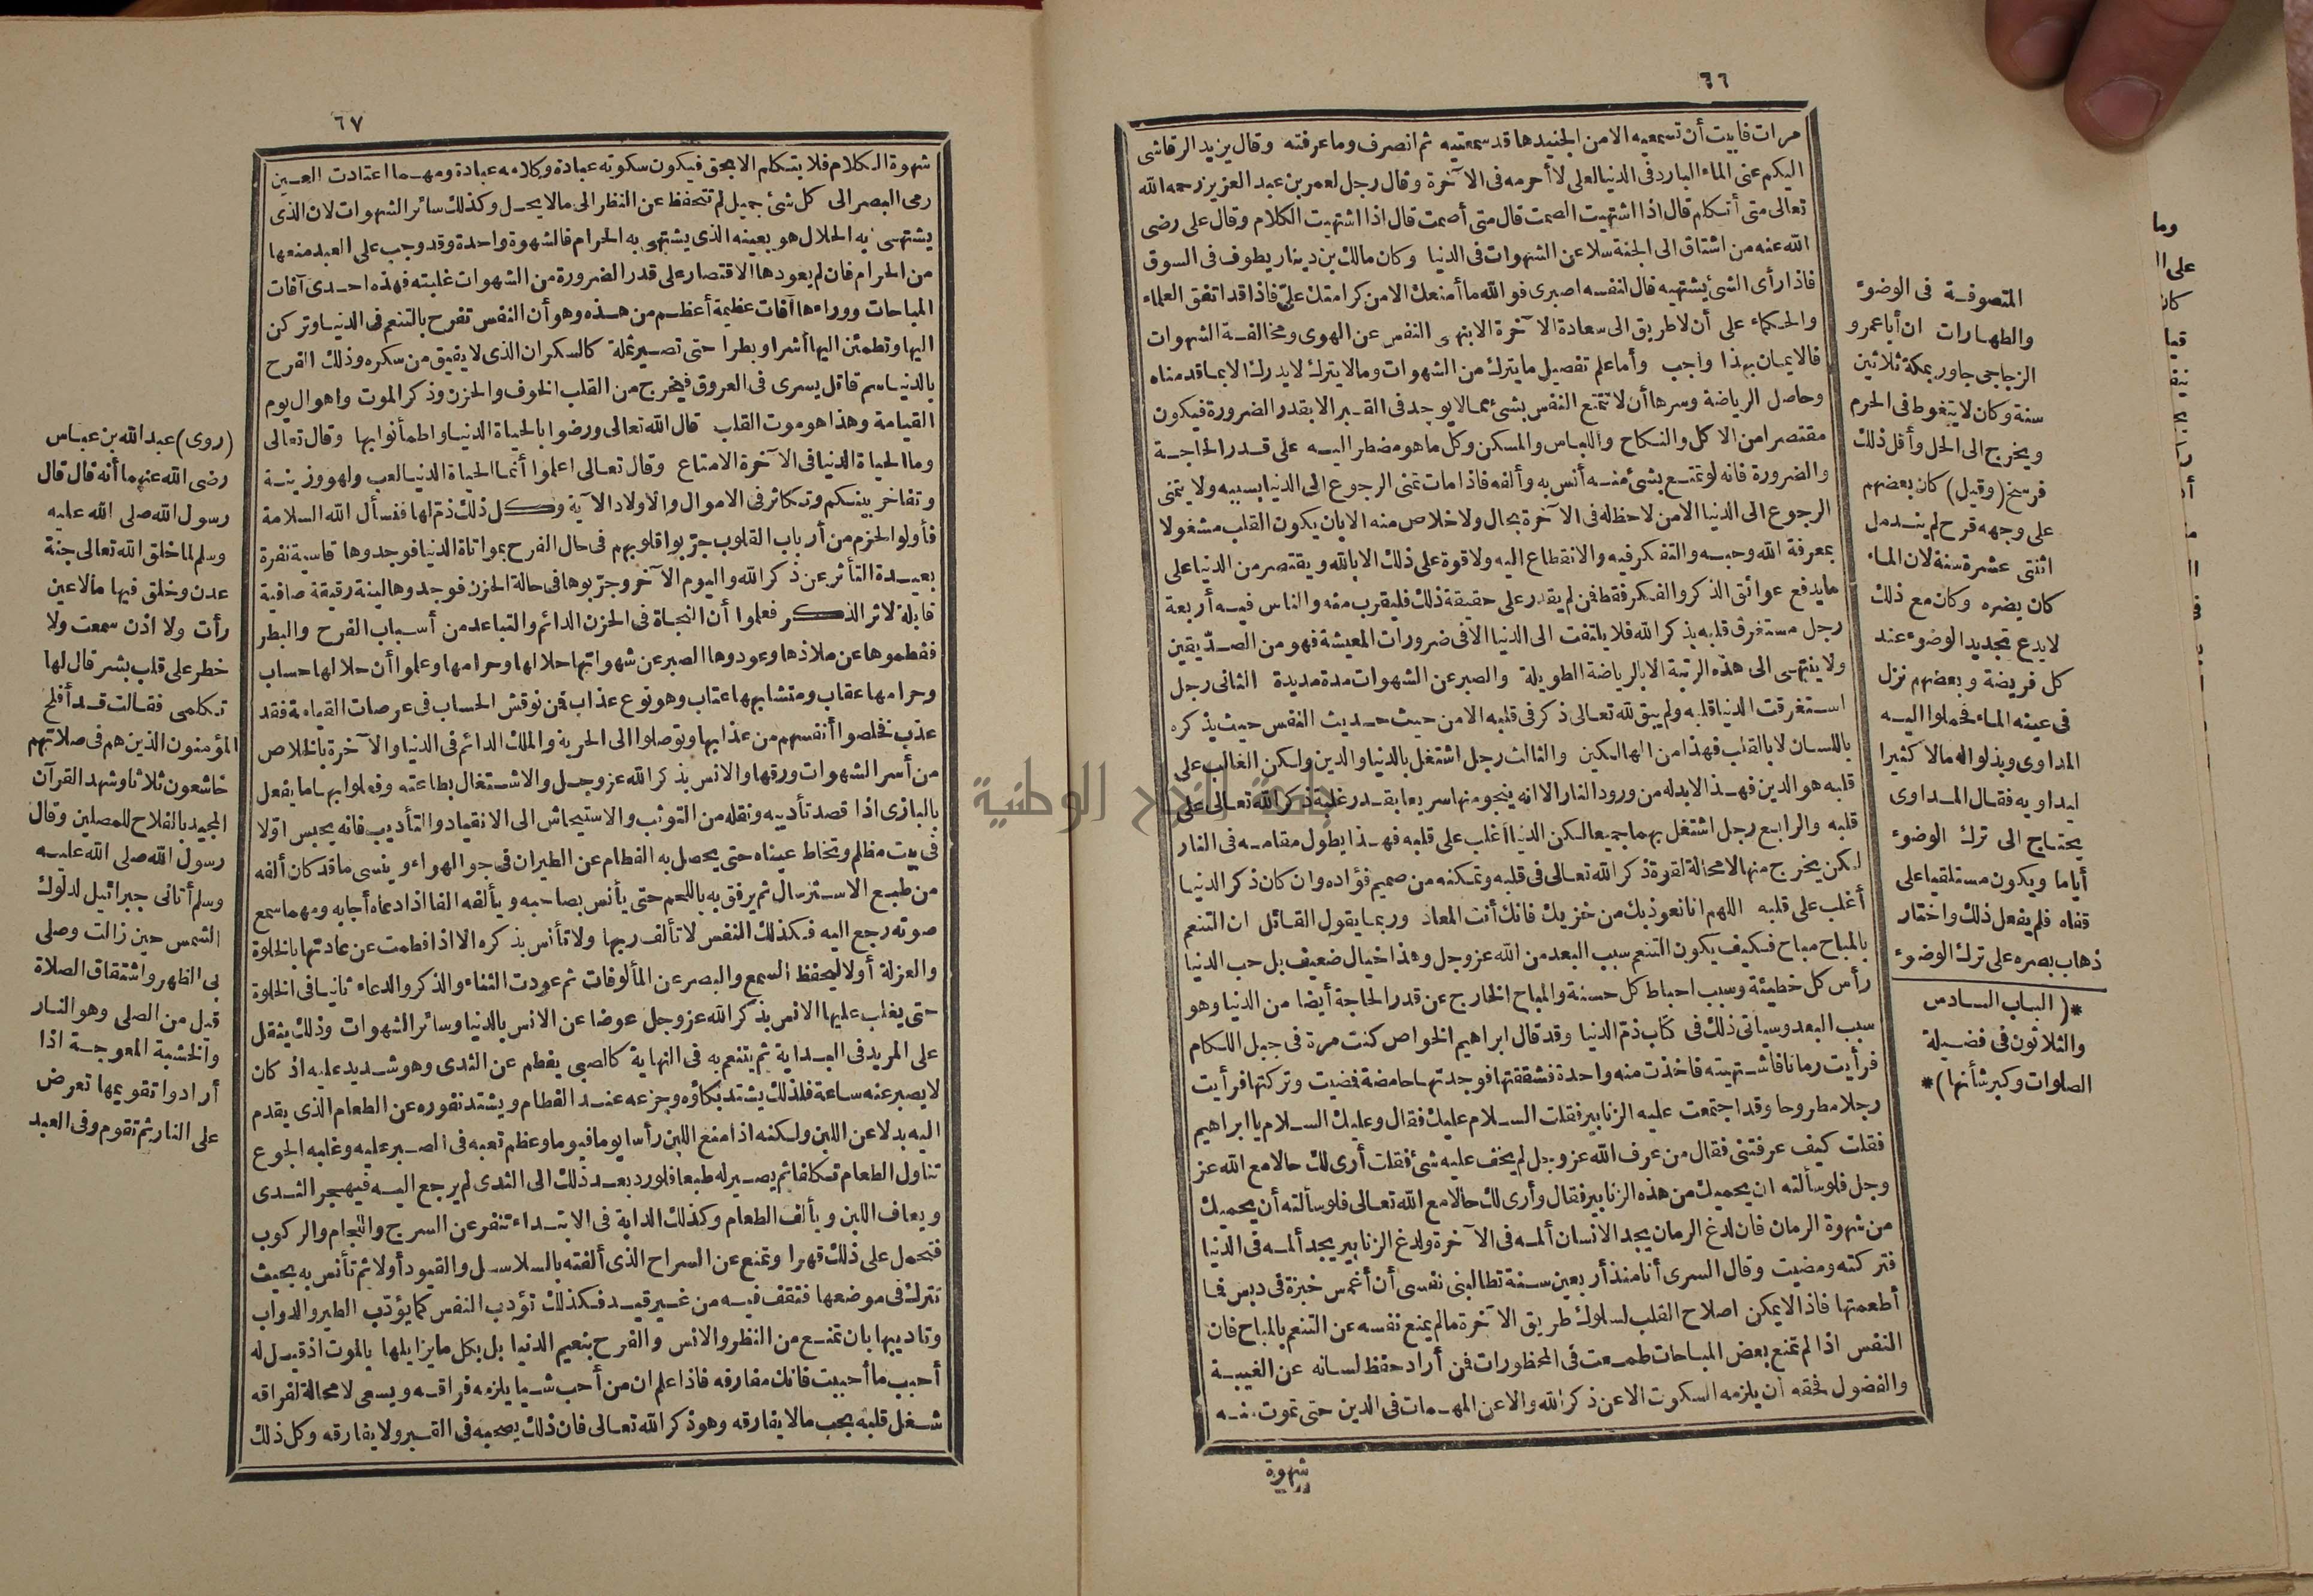 ٦٦
مرات فابيت أن تسمعيه الا من الجنيد ها قد سمعتيه ثم انصرف وما عرفته وقال يزيد الرقاشى
اليكم عنى الماء البارد فى الدنيا لعلى لا أحرمه فى الآخرة وقال رجل لعمر بن عبد العزيز رحمه الله
تعالى متى أتكلم قال اذا اشتهيت الصمت قال متى أصمت قال اذا اشتهيت الكلام وقال على رضى
الله عنه من اشتاق الى الجنة سلا عن الشهوات فى الدنيا وكان مالك بن دينار يطوف فى السوق
فاذا رأى الشئ يشتهيه قال لنفسه اصبرى فوالله ما أمنعك الا من كرامتك علىّ فاذا قد اتفق العلماء
والحكماء على أن لا طريق الى سعادة الآخرة الا بنهى النفس عن الهوى ومخالفة الشهوات
فالايمان بهذا واجب وأما علم تفصيل ما يترك من الشهوات وما لا يترك لا يدرك الا بما قدمناه
وحاصل الرياضة وسرها أن لا تتمتع النفس بشئ مما لا يوجد فى القبر الا بقدر الضرورة فيكون
مقتصرا من الاكل والنكاح واللباس والمسكن وكل ما هو مضطر اليه على قدر الحاجة
والضرورة فانه لو تمتع بشئ منه أنس به وألفه فاذا مات تمنى الرجوع الى الدنيا بسببه ولا يتمنى
الرجوع الى الدنيا الا من لا حظ له فى الآخرة بحال ولا خلاص منه الا بان يكون القلب مشغولا
بمعرفة الله وحبه والتفكر فيه والانقطاع اليه ولا قوة على ذلك الا بالله ويقتصر من الدنيا على
ما يدفع عوائق الذكر والفكر فقط فمن لم يقدر على حقيقة ذلك فليقرب منه والناس فيه أربعة
رجل مستغرق قلبه بذكر الله فلا يلتفت الى الدنيا الا فى ضرورات المعيشة فهو من الصدّيقين
ولا ينتهى الى هذه الرتبة الا بالرياضة الطويلة والصبر عن الشهوات مدة مديدة الثانى رجل
استغرقت الدنيا قلبه ولم يبق لله تعالى ذكر فى قلبه الا من حيث حديث النفس حيث يذكره
باللسان لا بالقلب فهذا من الهالكين والثالث رجل اشتغل بالدنيا والدين ولكن الغالب على
قلبه هو الدين فهذا لا بد له من ورود النار الا انه ينجو منها سريعا بقدر غلبة ذكر الله تعالى على
قلبه والرابع رجل اشتغل بهما جميعا لكن الدنيا أغلب على قلبه فهذا يطول مقامه فى النار
لكن يخرج منها لا محالة لقوة ذكر الله تعالى فى قلبه وتمكنه من صميم فؤاده وان كان ذكر الدنيا
أغلب على قلبه اللهم انا نعوذ بك من خزيك فانك أنت المعاذ وربما يقول القائل ان التنعم
بالمباح مباح فكيف يكون التنعم سبب البعد من الله عزوجل وهذا خيال ضعيف بل حب الدنيا
رأس كل خطيئة وسبب احباط كل حسنة والمباح الخارج عن قدر الحاجة أيضا من الدنيا وهو
سبب البعد وسيأتى ذلك فى كتاب ذم الدنيا وقد قال ابراهيم الخواص كنت مرة فى جبل اللكام
فرأيت رمانا فاشتهيته فاخذت منه واحدة فشققتها فوجدتها حامضة فمضيت وتركتها فرأيت
رجلا مطروحا وقد اجتمعت عليه الزنابير فقلت السلام عليك فقال وعليك السلام يا ابراهيم
فقلت كيف عرفتنى فقال من عرف الله عزوجل لم يخف عليه شئ فقلت أرى لك حالا مع الله عز
وجل فلو سألته ان يحميك من هذه الزنابير فقال وأرى لك حالا مع الله تعالى فلو سألته أن يحميك
من شهوة الرمان فان لدغ الرمان يجد الانسان ألمه فى الآخرة ولدغ الزنابير يجد ألمه فى الدنيا
فتركته ومضيت وقال السرى أنا منذ أربعين سنة تطالبنى نفسى أن أغمس خبزة فى دبس فما
أطعمتها فاذا لا يمكن اصلاح القلب لسلوك طريق الآخرة ما لم يمنع نفسه عن التنعم بالمباح فان
النفس اذا لم تمنع بعض المباحات طمعت فى المحظورات فمن أراد حفظ لسانه عن الغيبة
والفضول فحقه ان يلزمه السكوت الا عن ذكر الله والا عن المهمات فى الدين حتى تموت منه
شهوة
المتصوفة فى الوضوء
والطهارات ان أبا عمرو
الزجاجى جاور بمكة ثلاثين
سنة وكان لا يتغوط فى الحرم
ويخرج الى الحل وأقل ذلك
فرسخ (وقيل) كان بعضهم
على وجهه قرح لم يندمل
اثنتى عشرة سنة لان الماء
كان يضره وكان مع ذلك
لا يدع تجديد الوضوء عند
كل فريضة وبعضهم نزل
فى عينه الماء فحملوا اليه
المداوى وبذلوا له مالا كثيرا
ليداويه فقال المداوى
يحتاج الى ترك الوضوء
أياما ويكون مستلقيا على
قفاه فلم يفعل ذلك واختار
ذهاب بصره على ترك الوضوء
*(الباب السادس
والثلاثون فى فضيلة
الصلوات وكبر شأنها)*
٦٧
شهوة الكلام فلا يتكلم الا بحق فيكون سكوته عبادة وكلامه عبادة ومهما اعتادت العين
رمى البصر الى كل شئ جميل لم تتحفظ عن النظر الى ما لا يحل وكذلك سائر الشهوات لان الذى
يشتهى به الحلال هو بعينه الذى يشتهى به الحرام فالشهوة واحدة وقد وجب على العبد منعها
من الحرام فان لم يعودها الاقتصار على قدر الضرورة من الشهوات غلبته فهذه احدى آفات
المباحات ووراءها آفات عظيمة أعظم من هذه وهو أن النفس تفرح بالتنعم فى الدنيا وتركن
اليها وتطمئن اليها أشرا وبطرا حتى تصير ثملة كالسكران الذى لا يفيق من سكره وذلك الفرح
بالدنيا سم قاتل يسرى فى العروق فيخرج من القلب الخوف والحزن وذكر الموت واهوال يوم
القيامة وهذا هو موت القلب قال الله تعالى ورضوا بالحياة الدنيا واطمأنوا بها وقال تعالى
وما الحياة الدنيا فى الآخرة الا متاع وقال تعالى اعلموا أنما الحياة الدنيا لعب ولهو وزينة
وتفاخر بينكم وتكاثر فى الاموال والاولاد الآية وكل ذلك ذم لها فنسأل الله السلامة
فأولوا الحزم من أرباب القلوب جرّبوا قلوبهم فى حال الفرح بمواتاة الدنيا فوجدوها قاسية نفرة
بعيدة التأثر عن ذكر الله واليوم الآخر وجرّبوها فى حالة الحزن فوجدوها لينة رقيقة صافية
قابلة لاثر الذكر فعلموا أن النجاة فى الحزن الدائم والتباعد من أسباب الفرح والبطر
ففطموها عن ملاذها وعودوها الصبر عن شهواتها حلالها وحرامها وعلموا أن حلالها حساب
وحرامها عقاب ومتشابهها عتاب وهو نوع عذاب فمن نوقش الحساب فى عرصات القيامة فقد
عذب فخلصوا أنفسهم من عذابها وتوصلوا الى الحرية والملك الدائم فى الدنيا والآخرة بالخلاص
من أسر الشهوات ورقها والانس بذكر الله عزوجل والاشتغال بطاعته وفعلوا بها ما يفعل
بالبازى اذا قصد تأديبه ونقله من التوثب والاستيحاش الى الانقياد والتأديب فانه يحبس اوّلا
فى بيت مظلم وتخاط عيناه حتى يحصل به الفطام عن الطيران فى جو الهواء وينسى ما قد كان ألفه
من طبع الاسترسال ثم يرفق به باللحم حتى يأنس بصاحبه ويألفه الفا اذا دعاه أجابه ومهما سمع
صوته رجع اليه فكذلك النفس لا تألف ربها ولا تأنس بذكره الا اذا فطمت عن عادتها بالخلوة
والعزلة أولا ليحفظ السمع والبصر عن المألوفات ثم عودت الثناء والذكر والدعاء ثانيا فى الخلوة
حتى يغلب عليها الانس بذكر الله عزوجل عوضا عن الانس بالدنيا وسائر الشهوات وذلك يثقل
على المريد فى البداية ثم يتنعم به فى النهاية كالصبى يفطم عن الثدى وهو شديد عليه اذ كان
لا يصبر عنه ساعة فلذلك يشتد بكاؤه وجزعه عند الفطام ويشتد نفوره عن الطعام الذى يقدم
اليه بدلا عن اللبن ولكنه اذا منع اللبن رأسا يوما فيوما وعظم تعبه فى الصبر عليه وغلبه الجوع
تناول الطعام تكلفا ثم يصير له طبعا فلو رد بعد ذلك الى الثدى لم يرجع اليه فيهجر الثدى
ويعاف اللبن ويألف الطعام وكذلك الدابة فى الابتداء تنفر عن السرج واللجام والركوب
فتحمل على ذلك قهرا وتمنع عن السراح الذى ألفته بالسلاسل والقيود أولا ثم تأنس به بحيث
تترك فى موضعها فتقف فيه من غير قيد فكذلك تؤدب النفس كما يؤدّب الطير والدواب
وتاديبها بان تمنع من النظر والانس والفرح بنعيم الدنيا بل بكل ما يزايلها بالموت اذ قيل له
أحبب ما أحببت فانك مفارقه فاذا علم ان من أحب شيا يلزمه فراقه ويسعى لا محالة لفراقه
شغل قلبه بحب ما لا يفارقه وهو ذكر الله تعالى فان ذلك يصحبه فى القبر ولا يفارقه وكل ذلك
(روى) عبد الله بن عباس
رضى الله عنهما أنه قال قال
رسول الله صلى الله عليه
وسلم لما خلق الله تعالى جنة
عدن وخلق فيها ما لا عين
رأت ولا اذن سمعت ولا
خطر على قلب بشر قال لها
تكلمى فقالت قد أفلح
المؤمنون الذين هم فى صلاتهم
خاشعون ثلاثا وشهد القرآن
المجيد بالفلاح للمصلين وقال
رسول الله صلى الله عليه
وسلم أتانى جبرائيل لدلوك
الشمس حين زالت وصلى
بى الظهر واشتقاق الصلاة
قيل من الصلى وهو النار
والخشبة المعوجة اذا
أرادوا تقويمها تعرض
على النار ثم تقوم وفى العبد